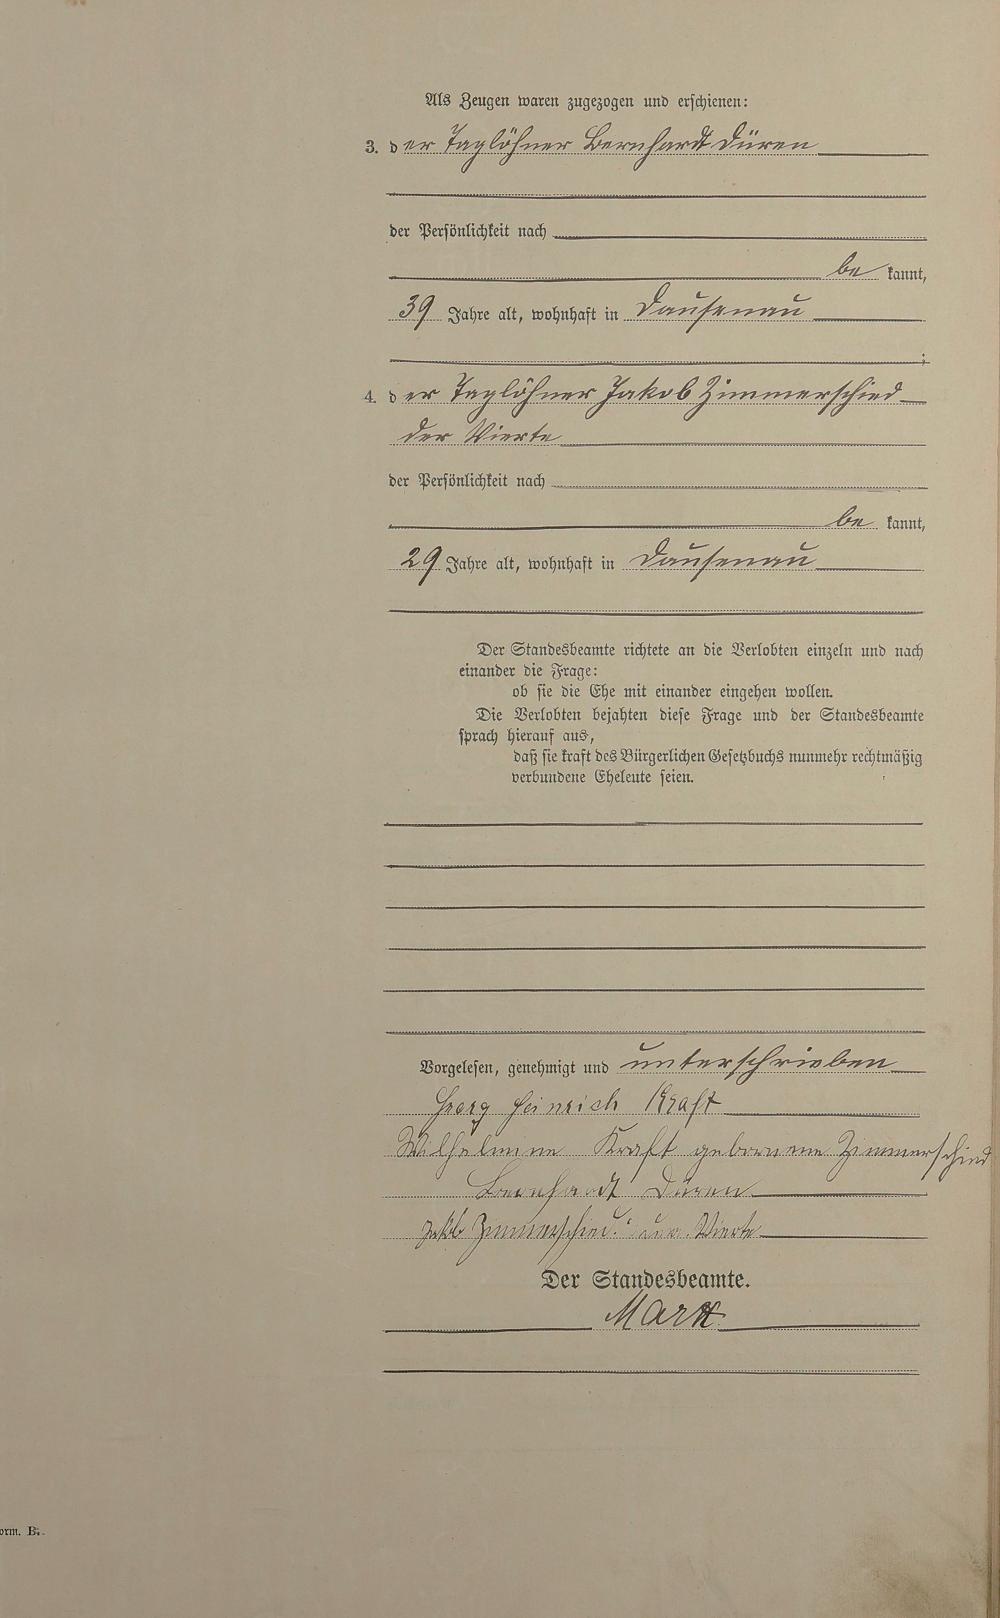 Als Zeugen waren zugezogen und erschienen:
3. der Taglöhner Bernhardt Düren
der Persönlichkeit nach
be kannt,
39 Jahre alt, wohnhaft in Dausenau
;
4. der Taglöhner Jakob Zimmerschied
der Vierte
der Persönlichkeit nach
be kannt,
29 Jahre alt, wohnhaft in Dausenau
Der Standesbeamte richtete an die Verlobten einzeln und nach
einander die Frage:
ob sie die Ehe mit einander eingehen wollen.
Die Verlobten bejahten diese Frage und der Standesbeamte
sprach hierauf aus,
daß sie kraft des Bürgerlichen Gesetzbuchs nunmehr rechtmäßig
verbundene Eheleute seien.
Vorgelesen, genehmigt und unterschrieben
Georg Heinrich Kraft
Wilhelmine Kraft gebornene Zimmerschied
Bernhardt Düren
Jakob Zimmerschied der Vierte
Der Standesbeamte.
Marx
orm. B.